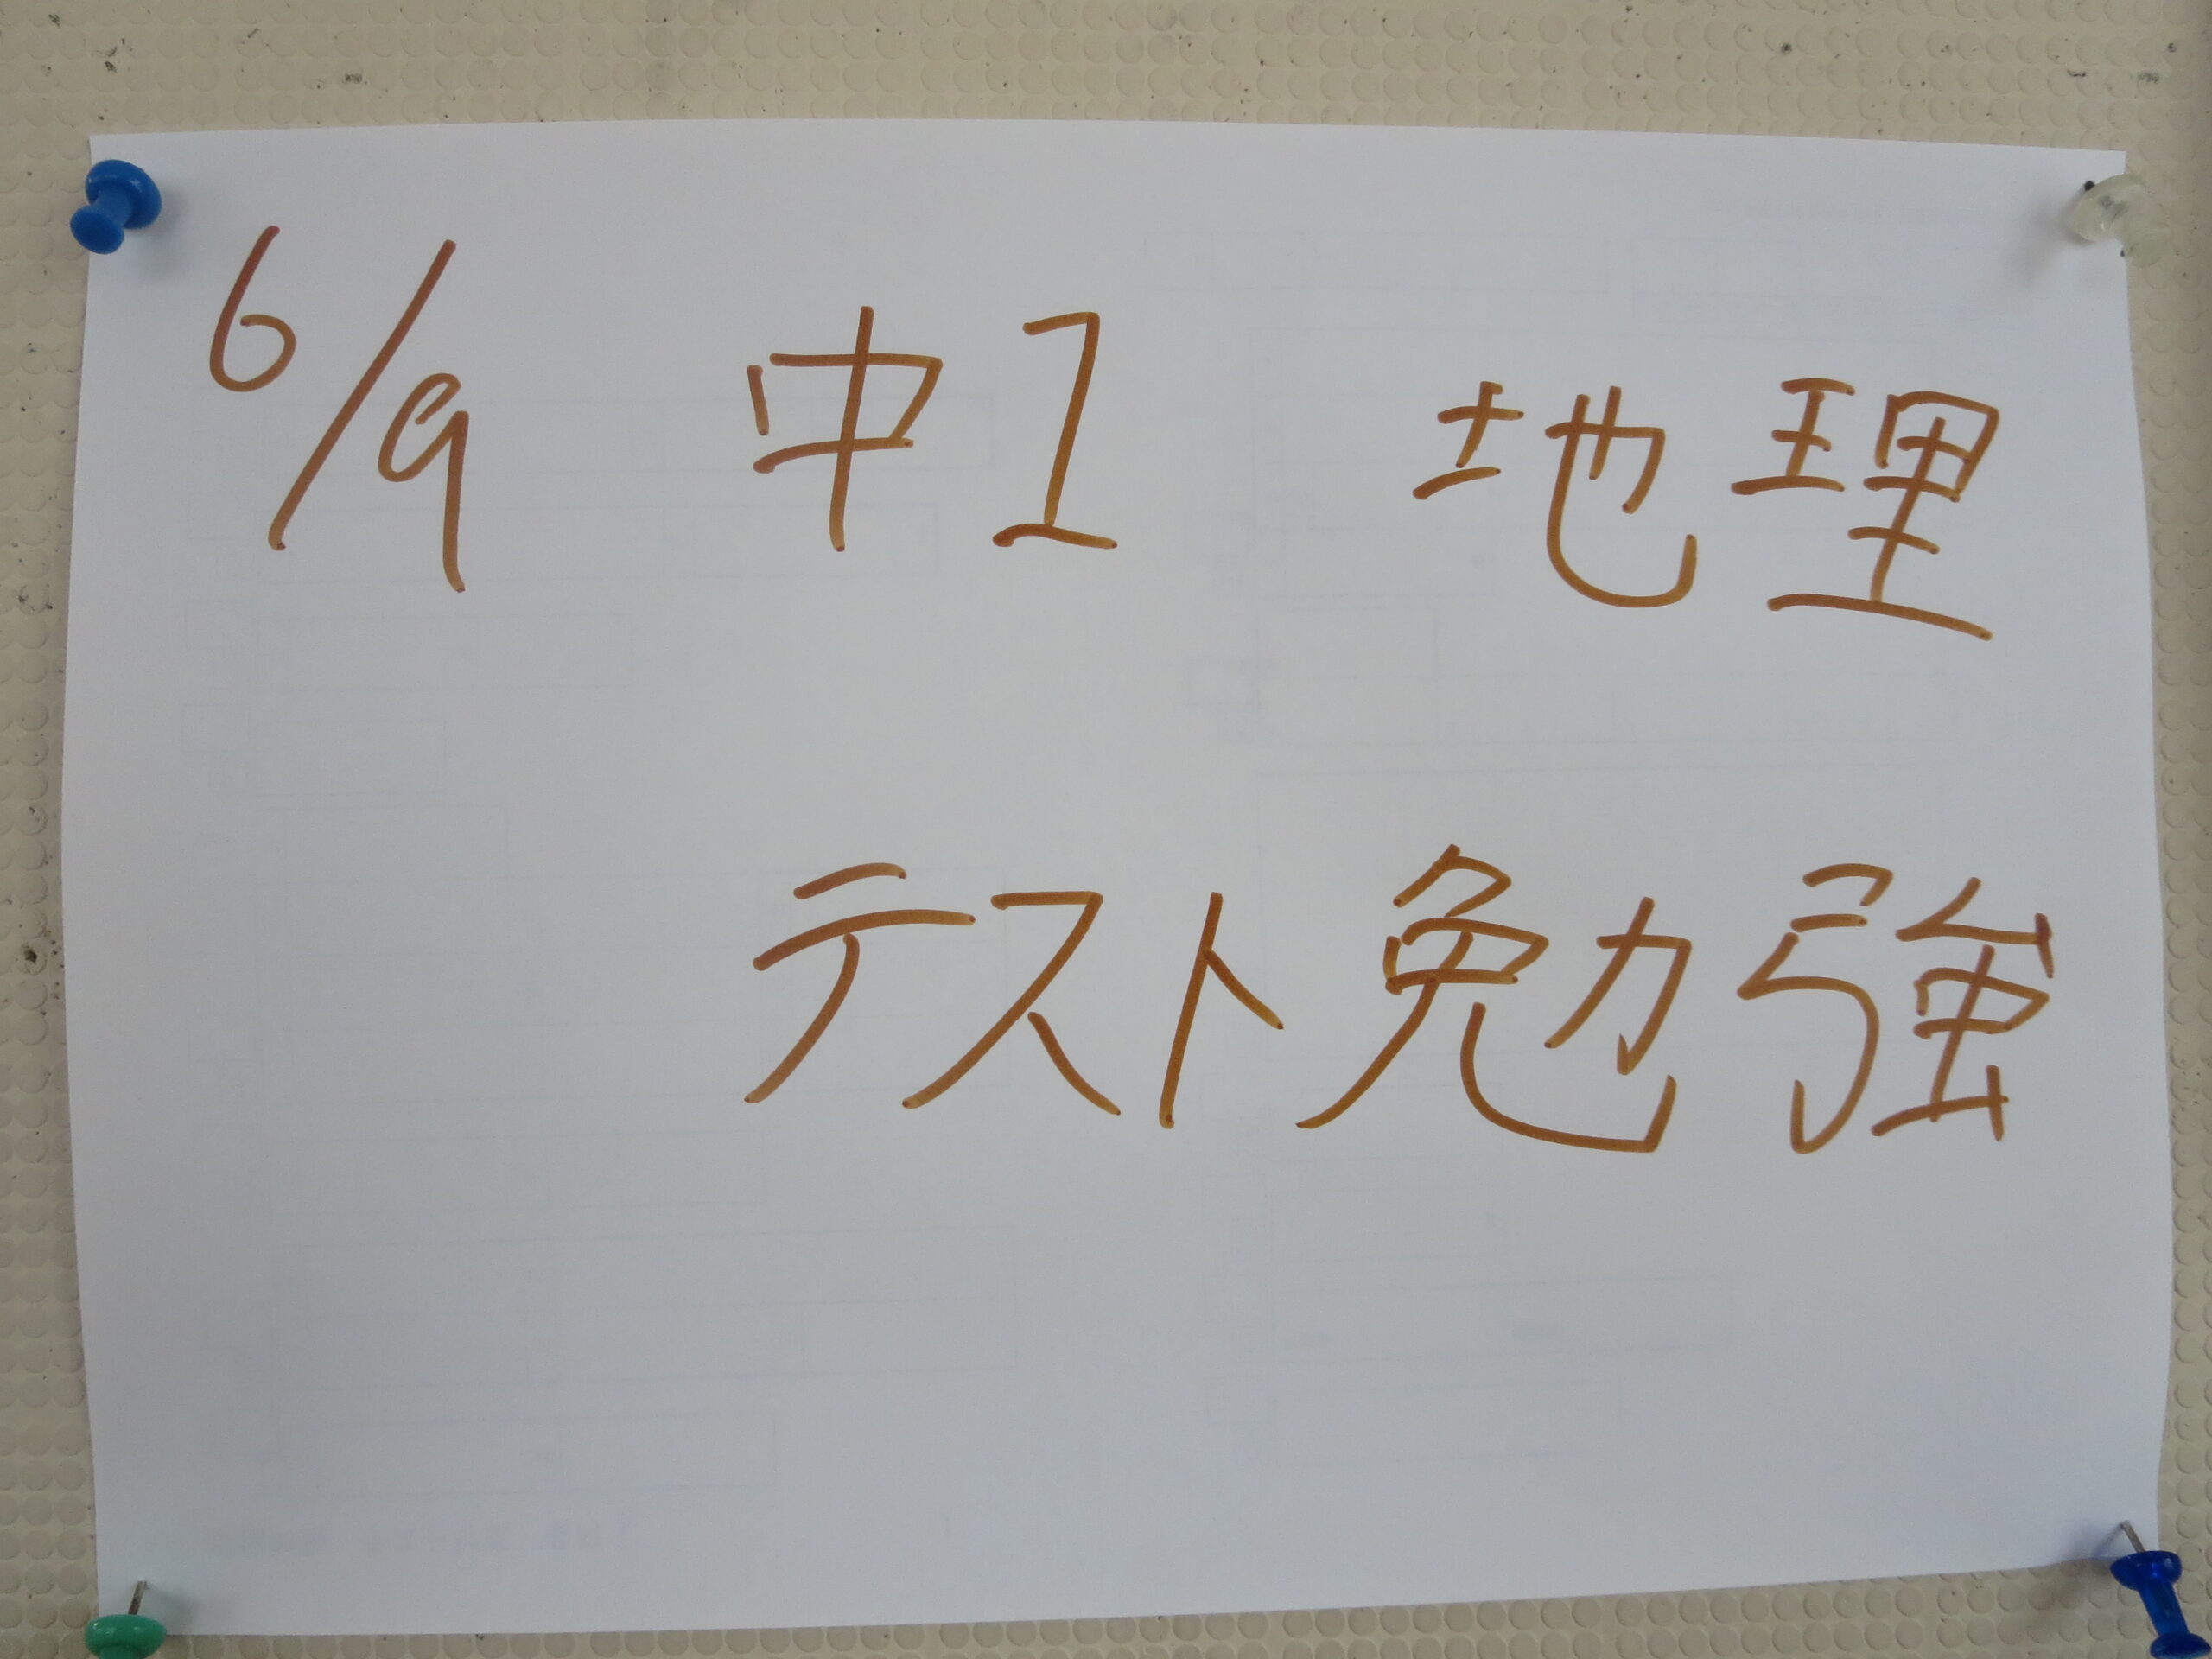 6/9 中1 地理
テスト勉強